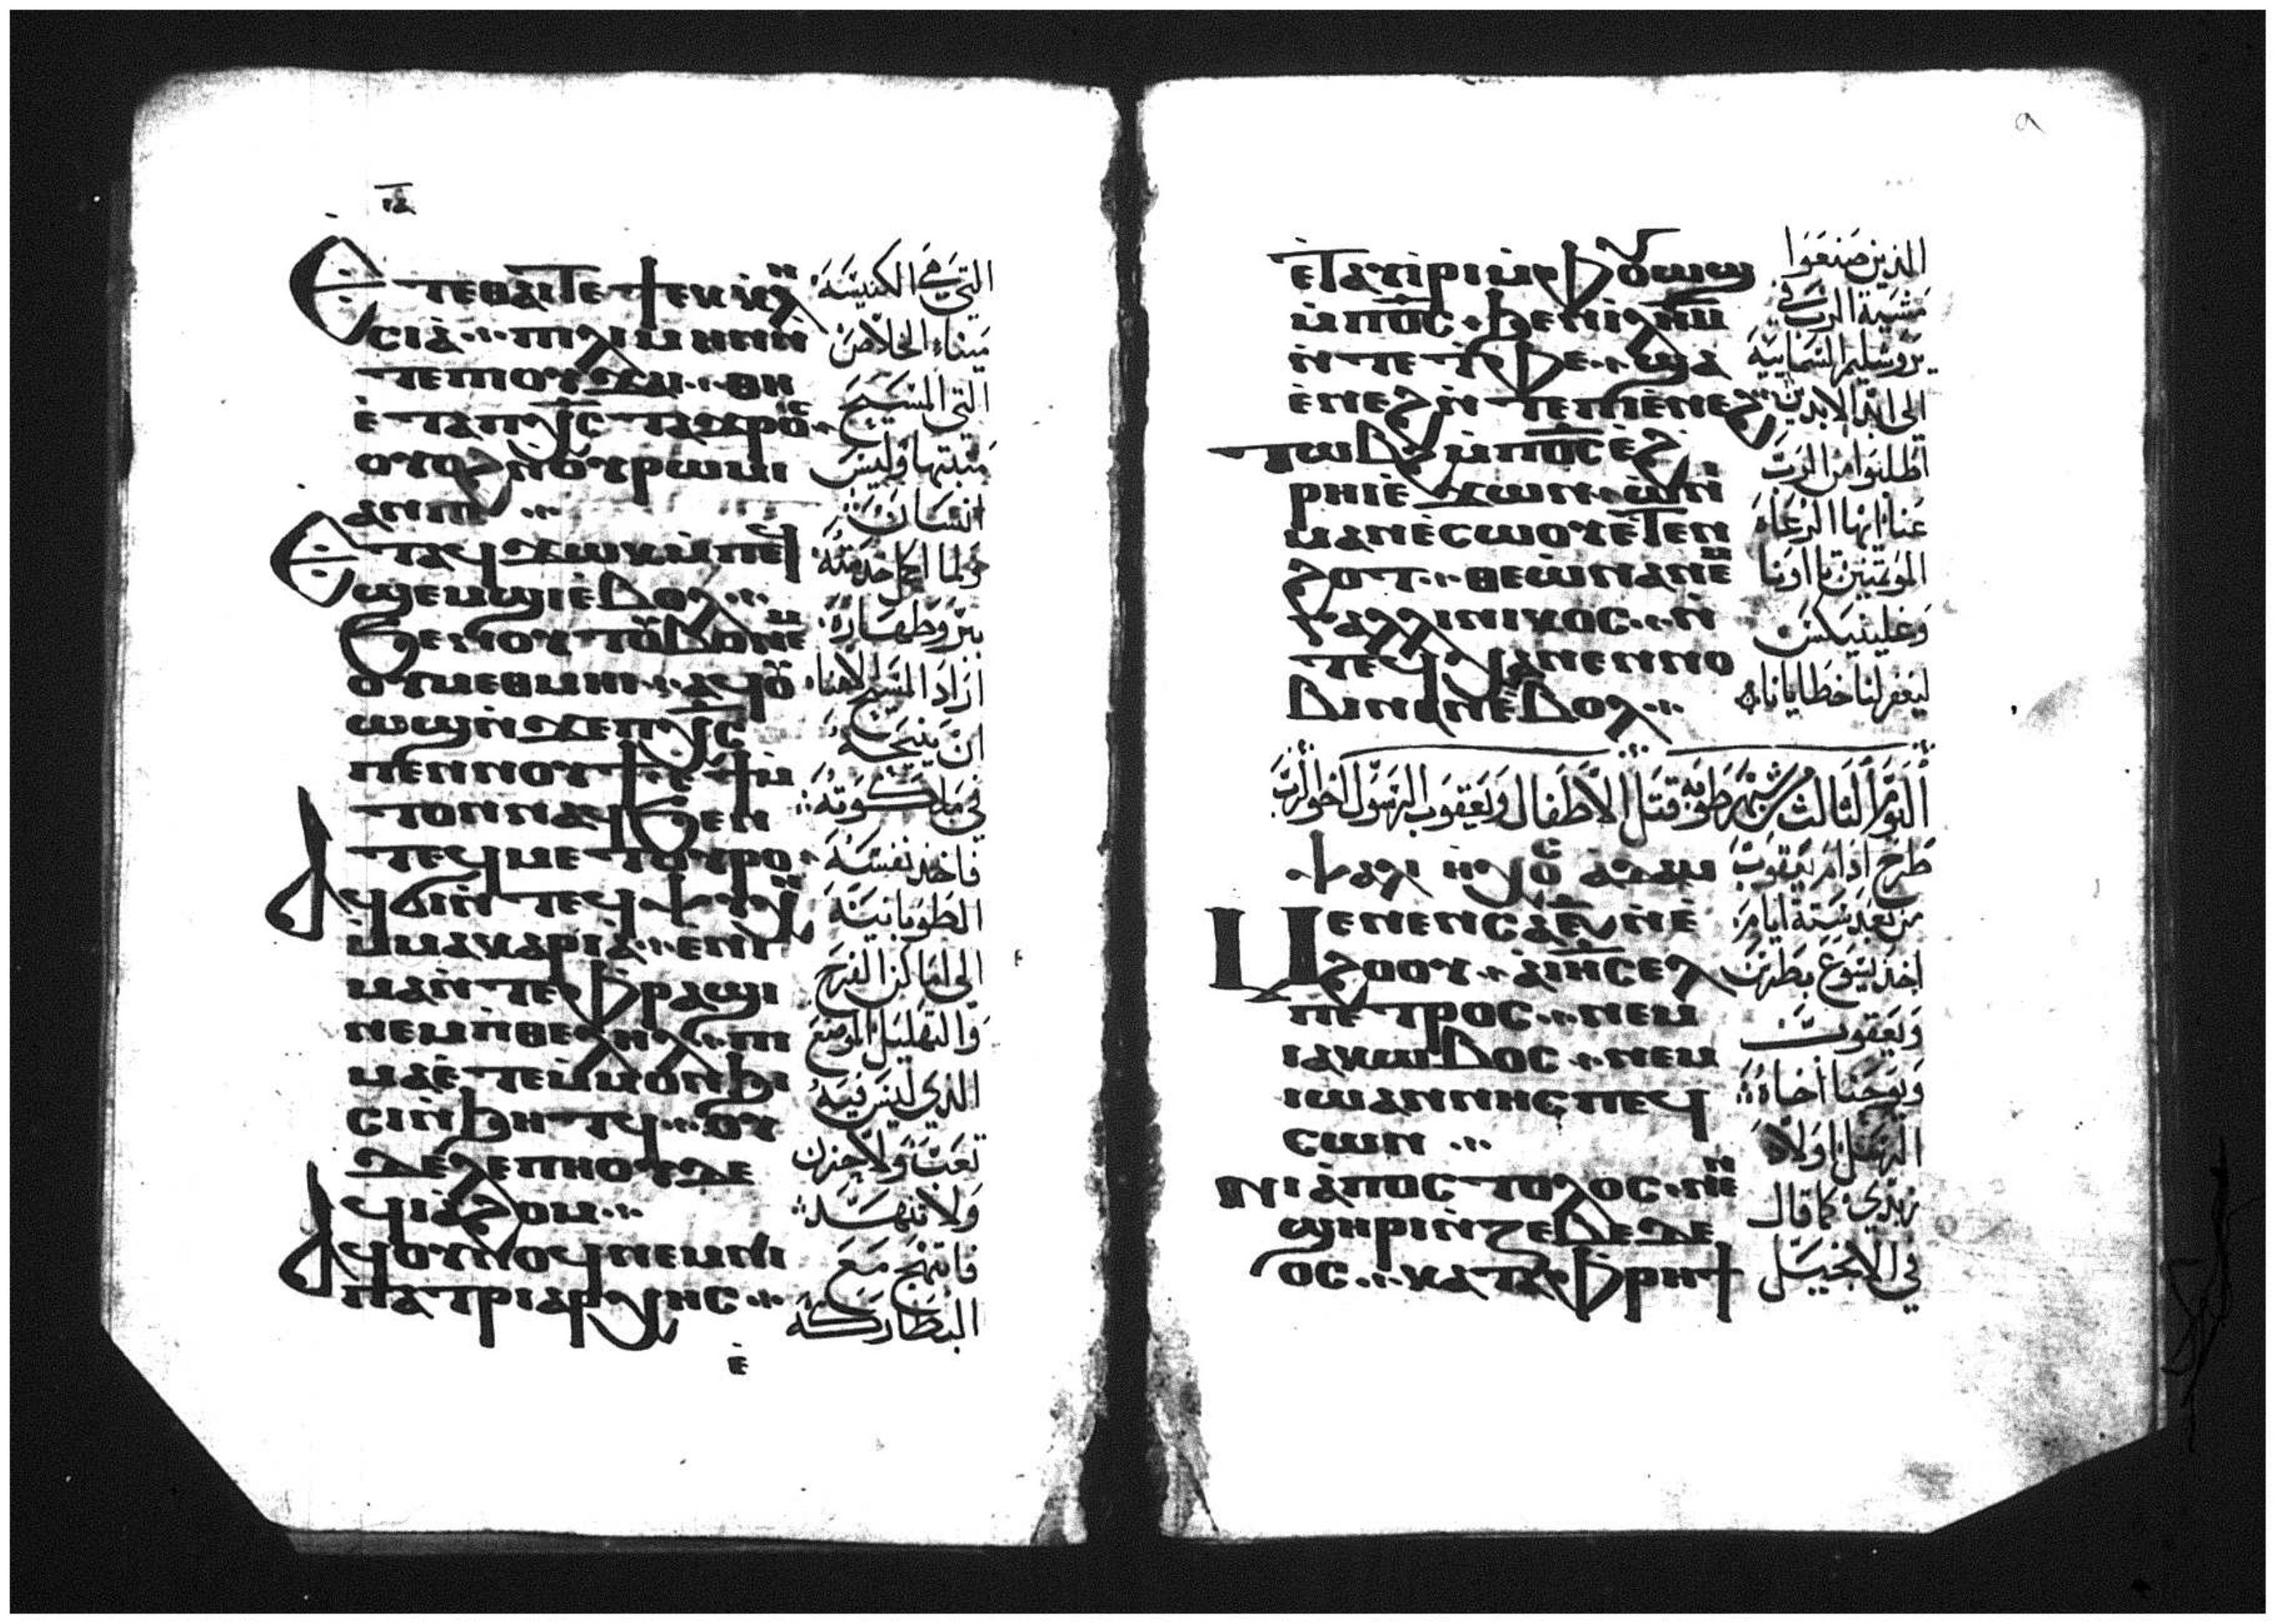 ⲓ̅ⲁ̅
ⲉⲧⲉⲑⲁⲓⲧⲉϯⲉⲕⲕⲗⲏ
ⲥⲓⲁ ⲡⲓⲗⲩⲙⲏⲛ ⲛ̀
ⲧⲉⲡⲓⲟⲩϫⲁⲓ ⲑⲏ
ⲉ̀ⲧⲁⲡⲭ̅ⲥ̅ ⲧⲁϫⲣⲟⲥ
ⲟⲩⲟϩⲛⲟⲩⲣⲱⲙⲓ
ⲁⲛⲡⲉ
ⲉⲧⲁϥϫⲱⲕⲙ̀ⲡⲉϥ
ϣⲉⲙϣⲓⲉ̀ⲃⲟⲗ
ϧⲉⲛⲟⲩⲧⲟⲩⲃⲟⲛⲉⲙ
ⲟⲩⲙⲉⲑⲙⲏⲓ ⲁϥⲟⲩ
ⲱϣⲛ̀ϫⲉⲡⲭ̅ⲥ̅
ⲡⲉⲛⲛⲟⲩϯ ⲉ̀ϯⲙ̀
ⲧⲟⲛⲛⲁϥϧⲉⲛ
ⲧⲉϥⲙⲉⲧⲟⲩⲣⲟ
ⲁϥϭⲓⲛ̀ⲧⲉϥⲯⲩⲭⲏ
ⲙ̀ⲙⲁⲕⲁⲣⲓⲁ ⲉ̀ⲛⲓ
ⲙⲁⲛ̀ⲧⲉⲫ̀ⲣⲁϣⲓ
ⲛⲉⲙⲡ̀ⲑⲉⲗⲏⲗ ⲡⲓ
ⲙⲁⲉ̀ⲧⲉⲙ̀ⲙⲟⲛϧⲓ
ⲥⲓⲛ̀ϧⲏⲧϥ ⲟⲩ
ⲇⲉⲗⲉⲡⲏⲟⲩⲇⲉ
ϥⲓⲁ̀ϩⲟⲙ
ⲁϥⲟⲩⲛⲟϥⲛⲉⲙⲛⲓ
ⲡⲁⲧⲣⲓⲁⲣⲭⲏⲥ
ⲉ̀
التي في الكنيسه
ميناء الخلاص
التي المسيح
مثبتها وليس
انسان
ولما اكمل خدمته
ببر وطهاره
اراد المسيح الاهنا
ان ينيحه
في ملكوته
فاخذ نفسه
الطوبانيه
الى اماكن الفرح
والتهليل الموضع
الذي ليس فيه
تعب ولا حزن
ولا تنهد
فابتهج مع
البطاركه
٩
ⲉ̀ⲧⲁⲩⲓ̀ⲣⲓⲙ̀ⲫⲟⲩⲱϣ
ⲙ̀ⲡⲟ̅ⲥ̅ ϧⲉⲛⲓⲗ̅ⲏ̅ⲙ̅
ⲛ̀ⲧⲉⲧ̀ⲫⲉ ϣⲁ
ⲉ̀ⲛⲉϩⲛ̀ⲧⲉⲡⲓⲉ̀ⲛⲉϩ
ⲧⲱⲃϩⲙ̀ⲡⲟ̅ⲥ̅ⲉ̀ϩ
ⲣⲏⲓⲉ̀ϫⲱⲛ ⲱ̀ⲛⲓ
ⲙⲁⲛⲉ̀ⲥⲱⲟⲩⲉ̀ⲧⲉⲛ
ϩⲟⲧ ⲑⲉⲱⲛⲁⲛⲉⲙ
ⲕⲁⲗⲗⲓⲛⲓⲕⲟⲥ ⲛ̀
ⲧⲉϥⲭⲁⲛⲉⲛⲛⲟ
ⲃⲓⲛⲁⲛⲉ̀ⲃⲟⲗ
الذين صنعوا
مشية الرب في
يروشليم السمايه
الى ابد الابدين
اطلبوا من الرب
عنا ايها الرعاه
الموتمنين تااونا
وغلينيكس
ليغفر لنا خطايانا
اليوم الثالث من شهر طوبه قتل الاطفال وليعقوب الرسول اخو الرب
ⲯⲁⲗⲓ ⲛ̀ⲭⲟⲥ ⲁⲇⲁⲙ
ⲙⲉⲛⲉⲛⲥⲁⲋ̅ⲛ̀ⲉ̀
ϩⲟⲟⲩ ⲁⲓ̅ⲏ̅ⲥ̅ⲉⲗ
ⲡⲉⲧⲣⲟⲥ ⲛⲉⲙ
ⲓⲁⲕⲱⲃⲟⲥ ⲛⲉⲙ
ⲓⲱⲁⲛⲛⲏⲥⲡⲉϥ
ⲥⲟⲛ
ⲛⲓⲁ̀ⲡⲟⲥⲧⲟⲗⲟⲥ ⲛⲉⲛ
ϣⲏⲣⲓⲛ̀ⲍⲉⲃⲉⲇⲉ
ⲟⲥ ⲕⲁⲧⲁⲫ̀ⲣⲏϯ
طرح ادام ليعقوب
من بعد ستة ايام
اخذ يسوع بطرس
ويعقوب
ويوحنا اخاه
الرسل اولاد
زبدي كما قال
في الانجيل